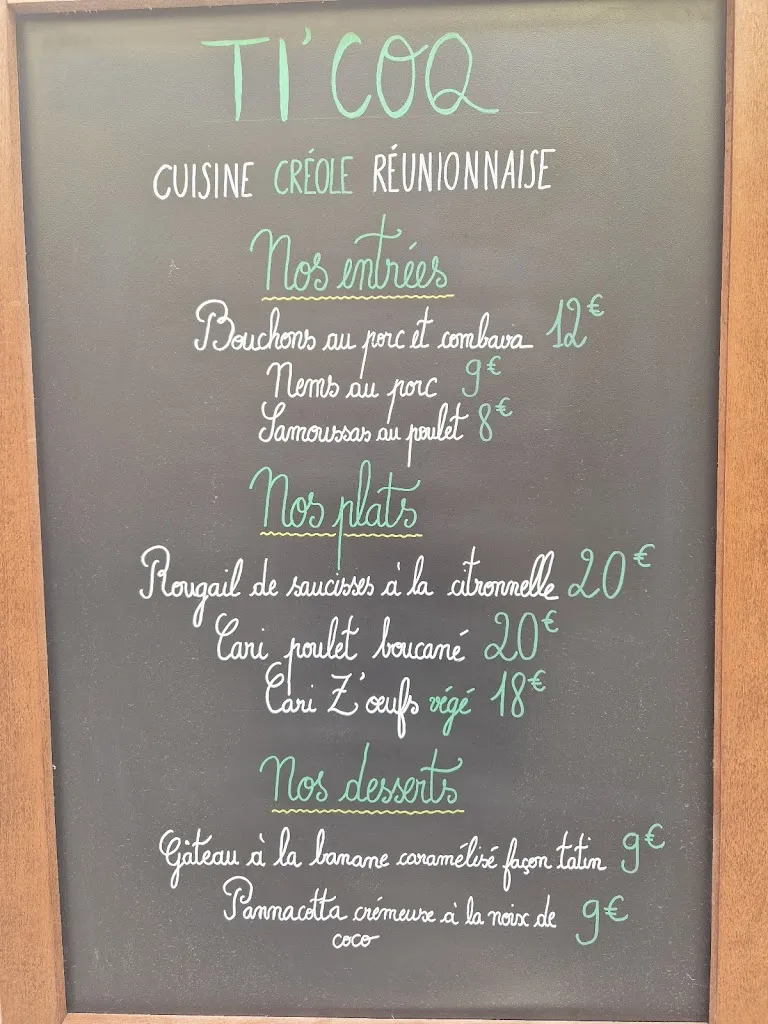 TI'COQ
CUISINE CRÉOLE RÉUNIONNAISE
Nos entrées
Bouchons au porc et combava 12€
Nems au porc 9€
Samoussas au poulet 8€
Nos plats
Rougail de saucisses à la citronnelle 20€
Cari poulet boucané 20€
Cari Z'œufs végé 18€
Nos desserts
Gâteau à la banane caramélisé façon tatin 9€
Pannacotta crémeuse à la noix de 9€
coco